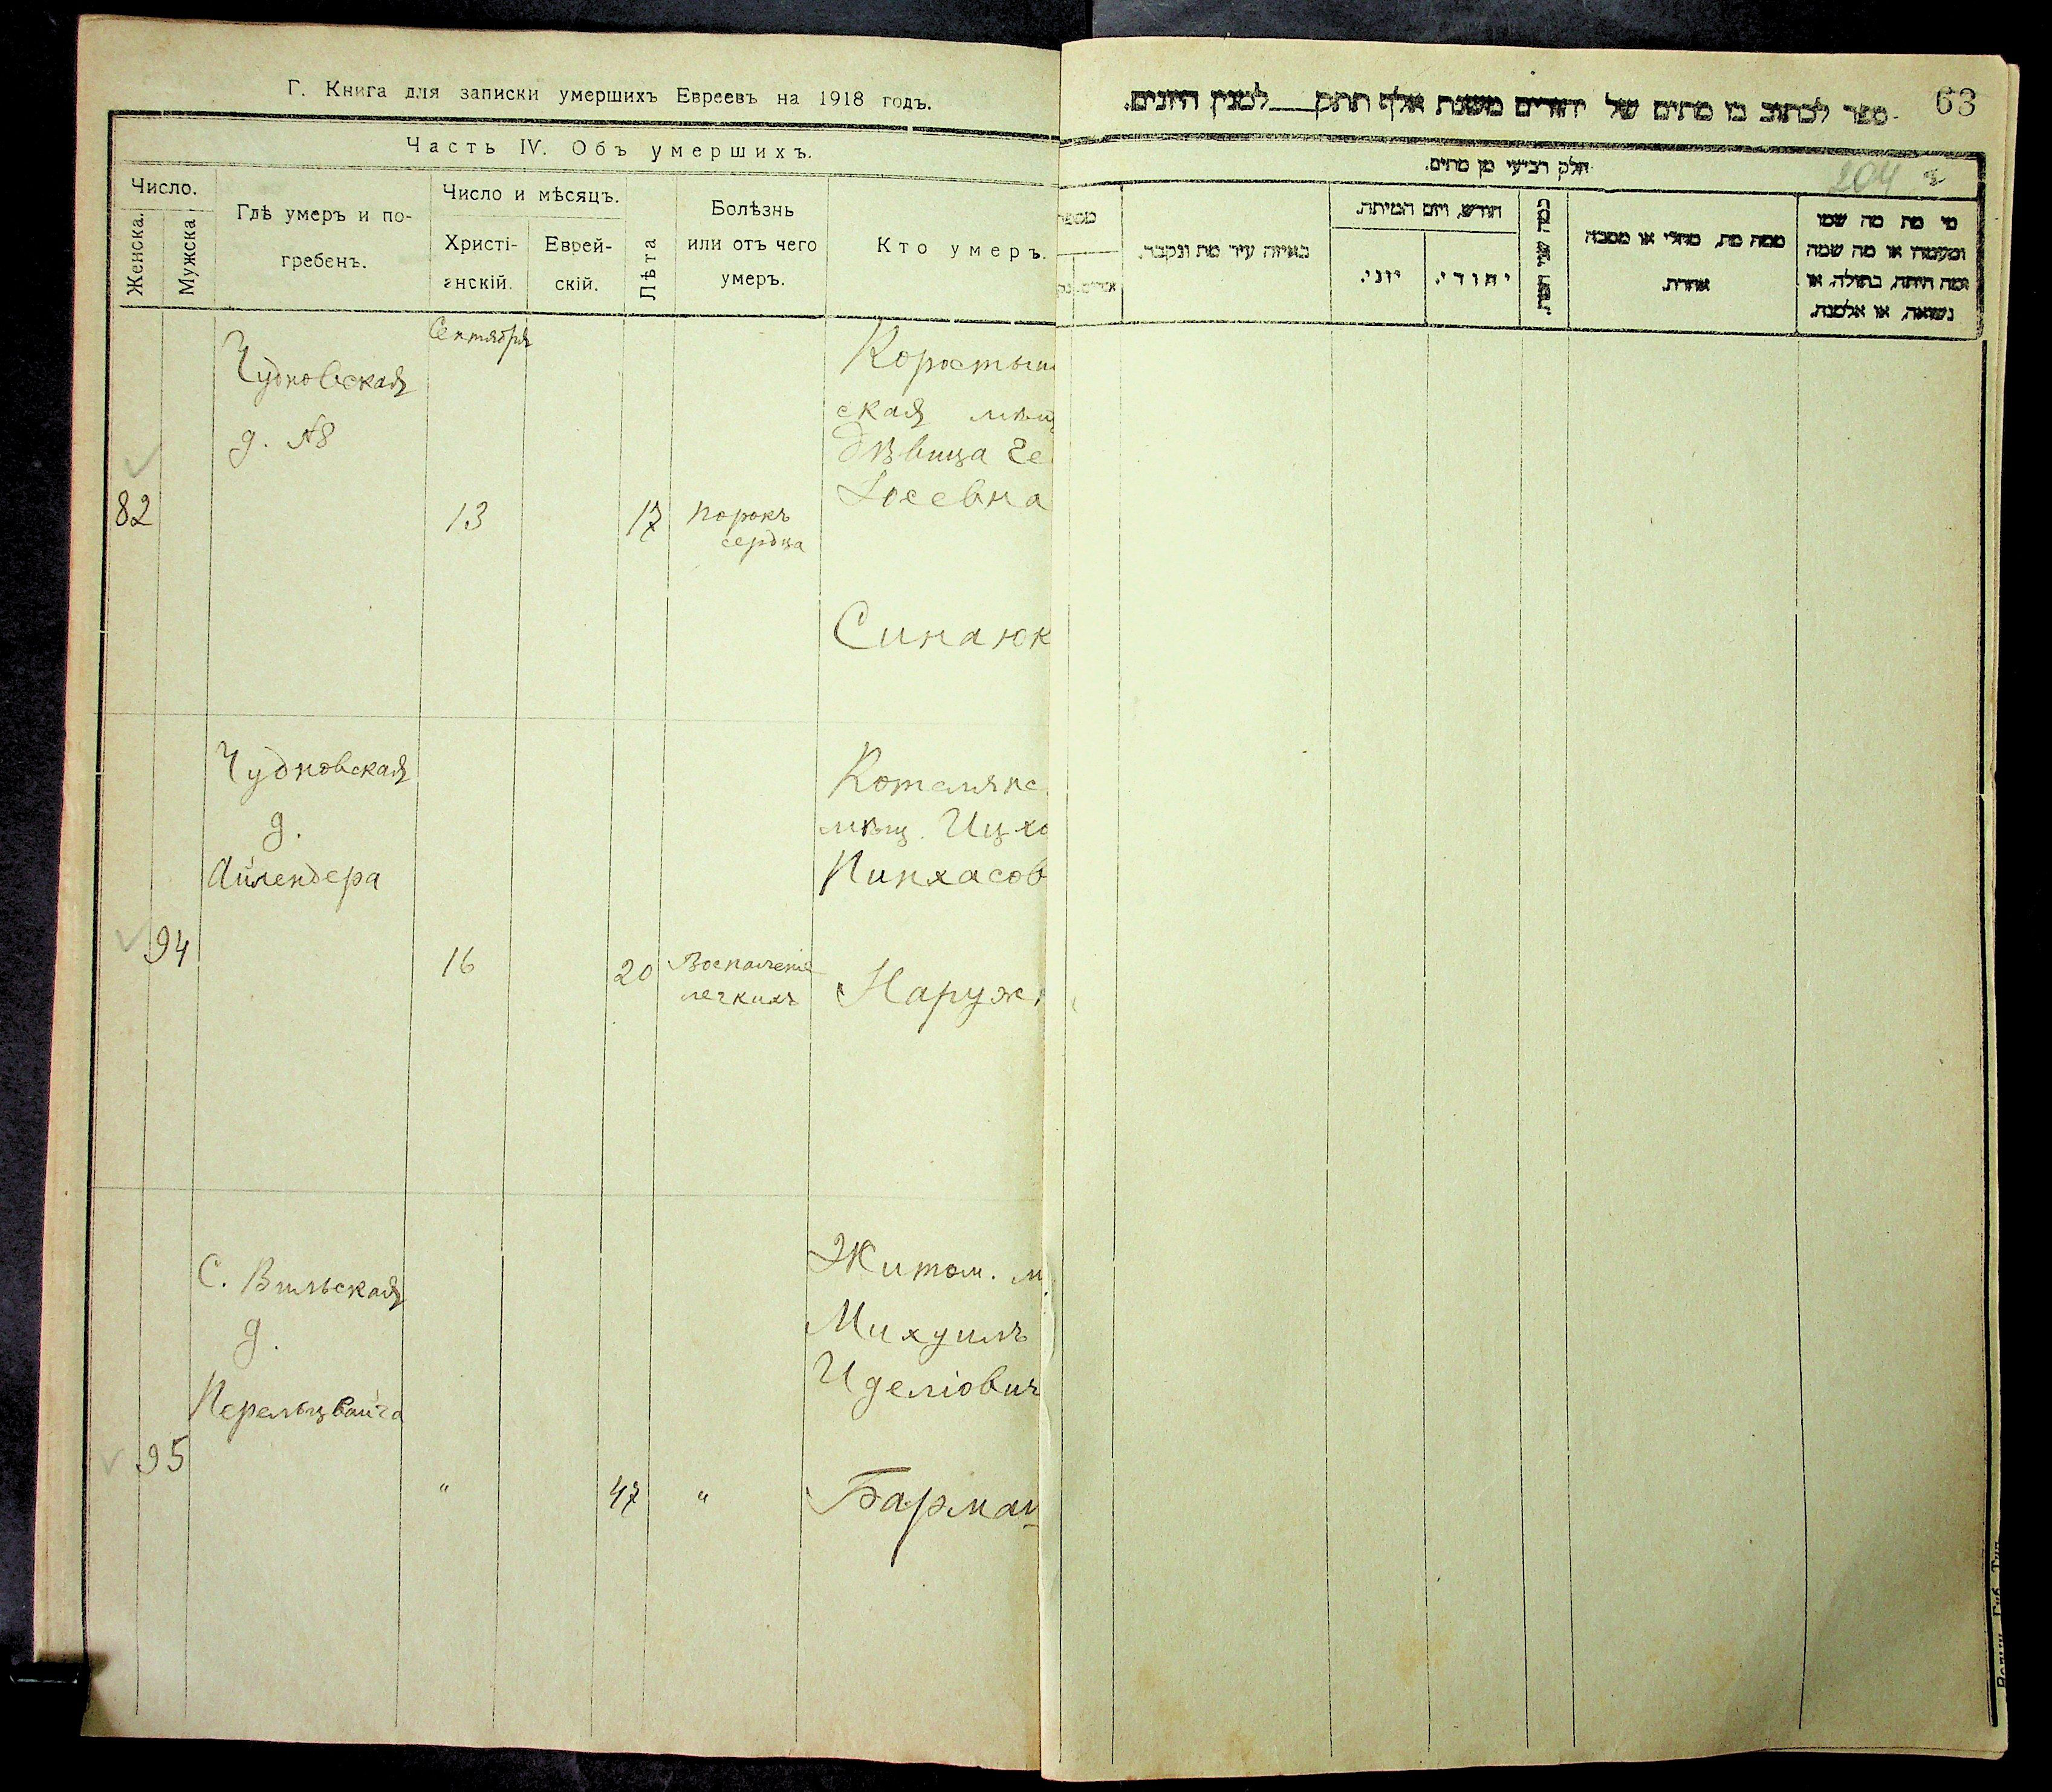 Г. Книга для записки умершихъ Евреевъ на 1918 годъ.
Часть IV. Объ умершихъ.
Число.
Женска.
Мужска
Гдѣ умеръ и по-
гребенъ.
Число и мѣсяцъ.
Христі-
анскій.
Еврей-
скій.
Лѣта
Болѣзнь
или отъ чего
умеръ.
Кто умеръ.
Сентября
Чудновская
д. №8
82
13
17
порокъ
сердца
Коросты
ская мѣщ
дѣвица Ге
Іосевна
Синаюк
Чудновская
д.
Айлендера
94
16
20
Воспаленіе
легкихъ
Котельнс
мѣщ. Ицхо
Пинхасов
Наруж
С. Вильская
д.
Перельцвайга
95
"
47
"
Житом. м
Михуилъ
Иделіович
Барман
63
ספר לכתוב בו מתים של יהודים משנת אלף תתק למנין היונים.
חלק רביעי מן מתים.
204
מספר
באיזה עיר מת ונקבר.
חודש, ויום המיתה.
יוני.
יהודי.
ממה מת, מחלי או מסבה
אחרת.
מי מת מה שמו
ומעמדו או מה שמה
ומה היתה, בתולה, או
נשואה, או אלמנה.